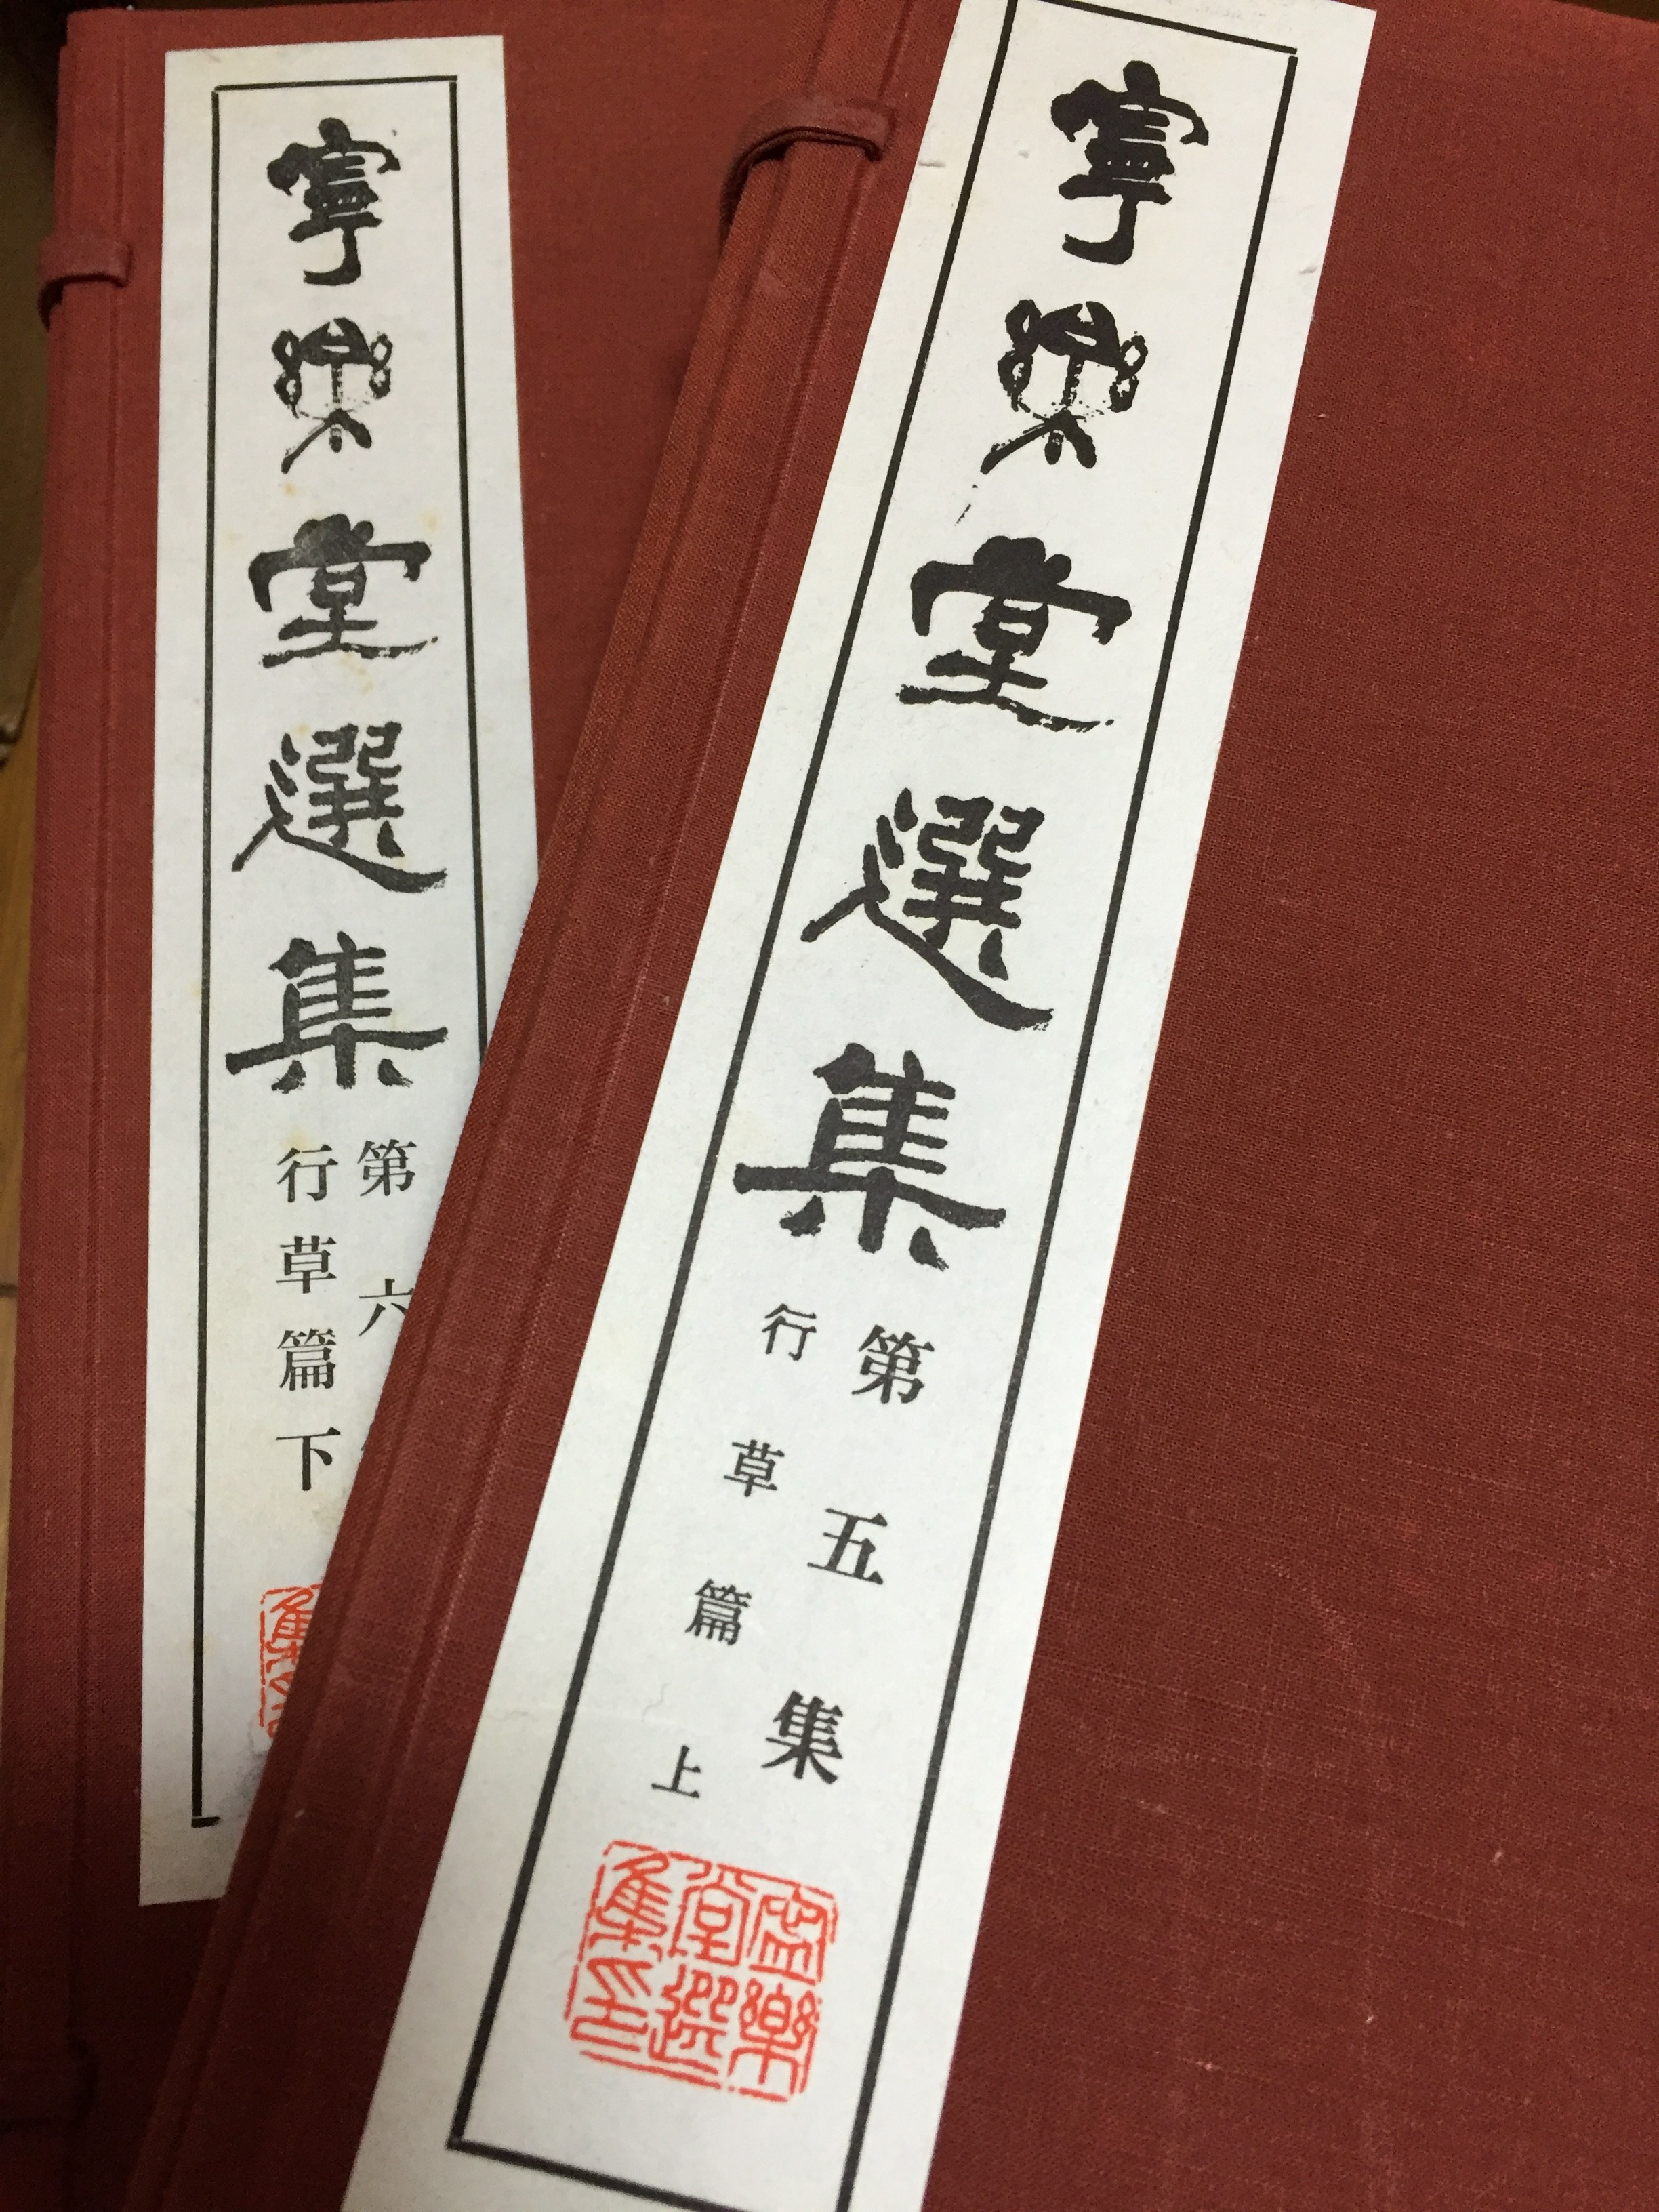 寧樂堂選集
第六
行草篇下
寧樂堂選集
第五集
行草篇上
寧樂
堂選
集印